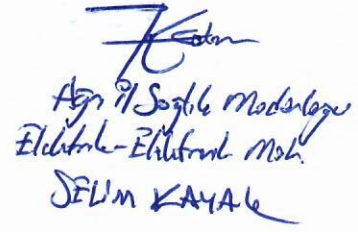 Ağrı İl Sağlık Müdürlüğü
Elektrik-Elektronik Müh.
SELİM KAYAK